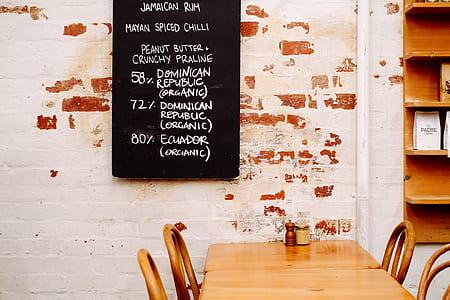 JAMAICAN RUM
MAYAN SPICED CHILLI
PEANUT BUTTER &
CRUNCHY PRALINE
58% DOMINICAN
REPUBLIC
(ORGANIC)
72% DOMINICAN
REPUBLIC
(ORGANIC)
80% ECUADOR
(ORGANIC)
PADRE